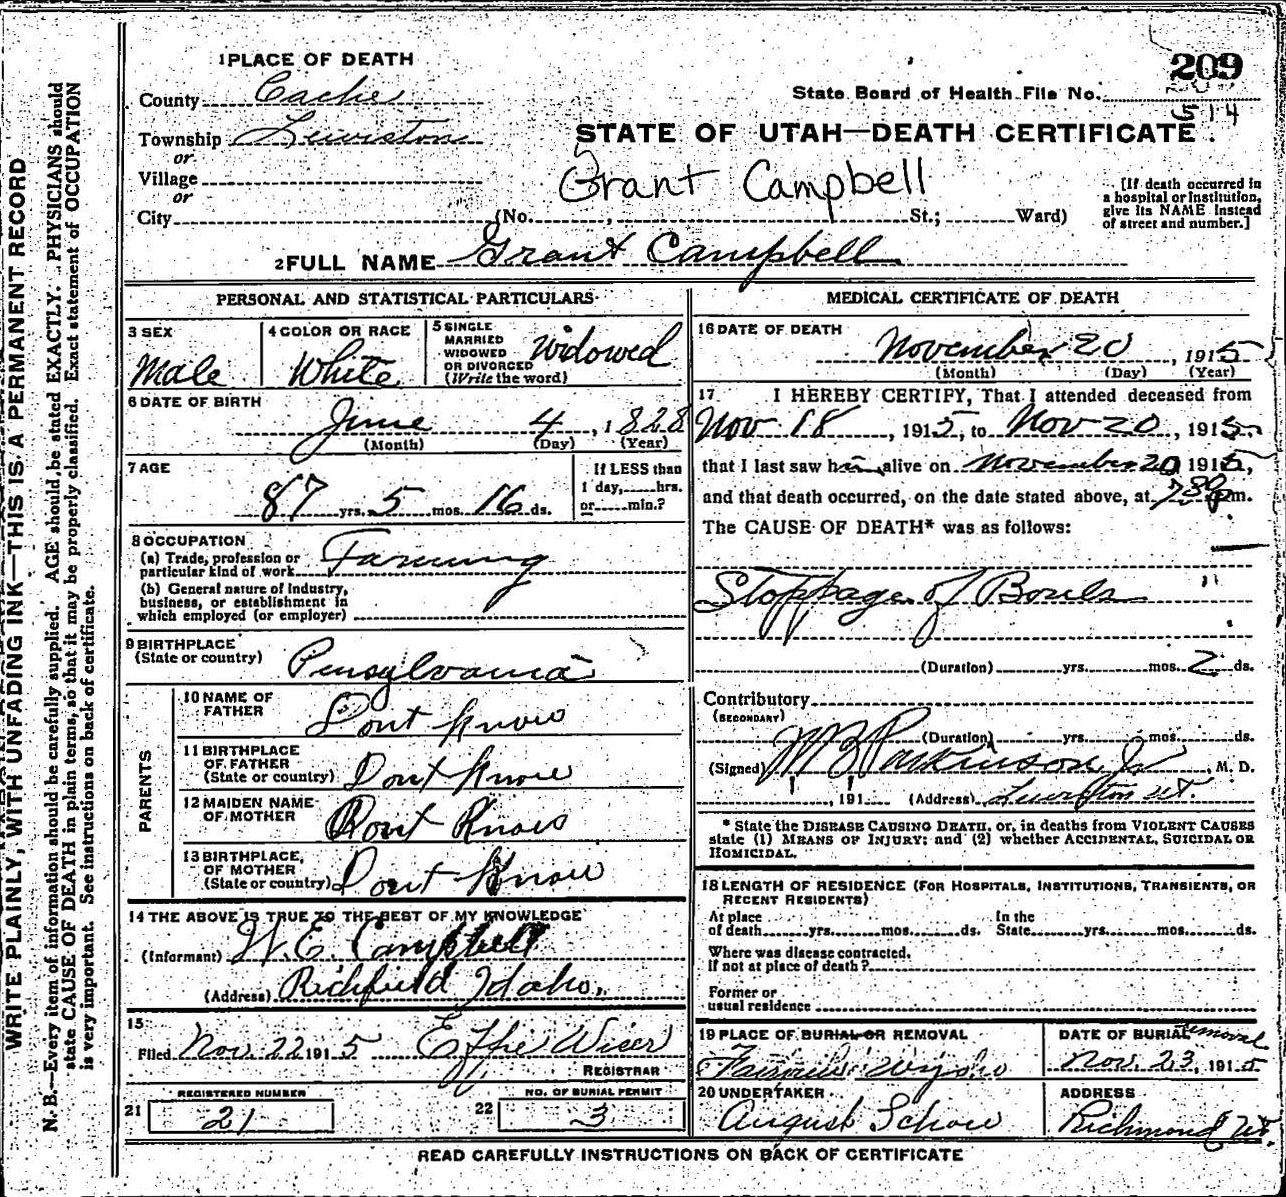 WRITE PLAINLY, WITH UNFADING INK—THIS IS A PERMANENT RECORD
N. B.—Every item of information should be carefully supplied. AGE should be stated EXACTLY. PHYSICIANS should
state CAUSE OF DEATH in plain terms, so that it may be properly classified. Exact statement of OCCUPATION
is very important. See instructions on back of certificate.
209
State Board of Health File No.
514
STATE OF UTAH—DEATH CERTIFICATE
1 PLACE OF DEATH
County Cache
Township Lewiston
or
Village
or
City (No. , St.; Ward)
Grant Campbell
[If death occurred in
a hospital or institution,
give its NAME instead
of street and number.]
2 FULL NAME Grant Campbell
PERSONAL AND STATISTICAL PARTICULARS
3 SEX
Male
4 COLOR OR RACE
White
5 SINGLE
MARRIED
WIDOWED
OR DIVORCED
(Write the word)
Widowed
6 DATE OF BIRTH
June 4, 1828
(Month) (Day) (Year)
7 AGE
87 yrs. 5 mos. 16 ds.
If LESS than
1 day, hrs.
or min.?
8 OCCUPATION
(a) Trade, profession or
particular kind of work Farming
(b) General nature of Industry,
business, or establishment in
which employed (or employer)
9 BIRTHPLACE
(State or country) Pensylvania
PARENTS
10 NAME OF
FATHER Dont Know
11 BIRTHPLACE
OF FATHER
(State or country) Dont Know
12 MAIDEN NAME
OF MOTHER Dont Know
13 BIRTHPLACE
OF MOTHER
(State or country) Dont Know
14 THE ABOVE IS TRUE TO THE BEST OF MY KNOWLEDGE
(Informant) W. E. Campbell
(Address) Richfield Idaho.
15
Filed Nov. 22 1915 Effie Wiser
REGISTRAR
REGISTERED NUMBER
21 21
NO. OF BURIAL PERMIT
22 3
MEDICAL CERTIFICATE OF DEATH
16 DATE OF DEATH
November 20, 1915
(Month) (Day) (Year)
17 I HEREBY CERTIFY, That I attended deceased from
Nov 18, 1915, to Nov 20, 1915
that I last saw him alive on November 20, 1915,
and that death occurred, on the date stated above, at 7 30 p m.
The CAUSE OF DEATH* was as follows:
Stoppage of Bowels
(Duration) yrs. mos. 2 ds.
Contributory
(SECONDARY)
(Duration) yrs. mos. ds.
(Signed) W B Parkinson Jr M. D.
, 191 (Address) Lewiston Ut.
* State the DISEASE CAUSING DEATH, or, in deaths from VIOLENT CAUSES
state (1) MEANS OF INJURY; and (2) whether ACCIDENTAL, SUICIDAL OR
HOMICIDAL.
18 LENGTH OF RESIDENCE (FOR HOSPITALS, INSTITUTIONS, TRANSIENTS, OR
RECENT RESIDENTS)
At place
of death yrs. mos. ds.
In the
State yrs. mos. ds.
Where was disease contracted,
if not at place of death?
Former or
usual residence
19 PLACE OF BURIAL OR REMOVAL
DATE OF BURIAL removal
Nov. 23, 1915
20 UNDERTAKER
August Schow
ADDRESS
Richmond Ut.
READ CAREFULLY INSTRUCTIONS ON BACK OF CERTIFICATE